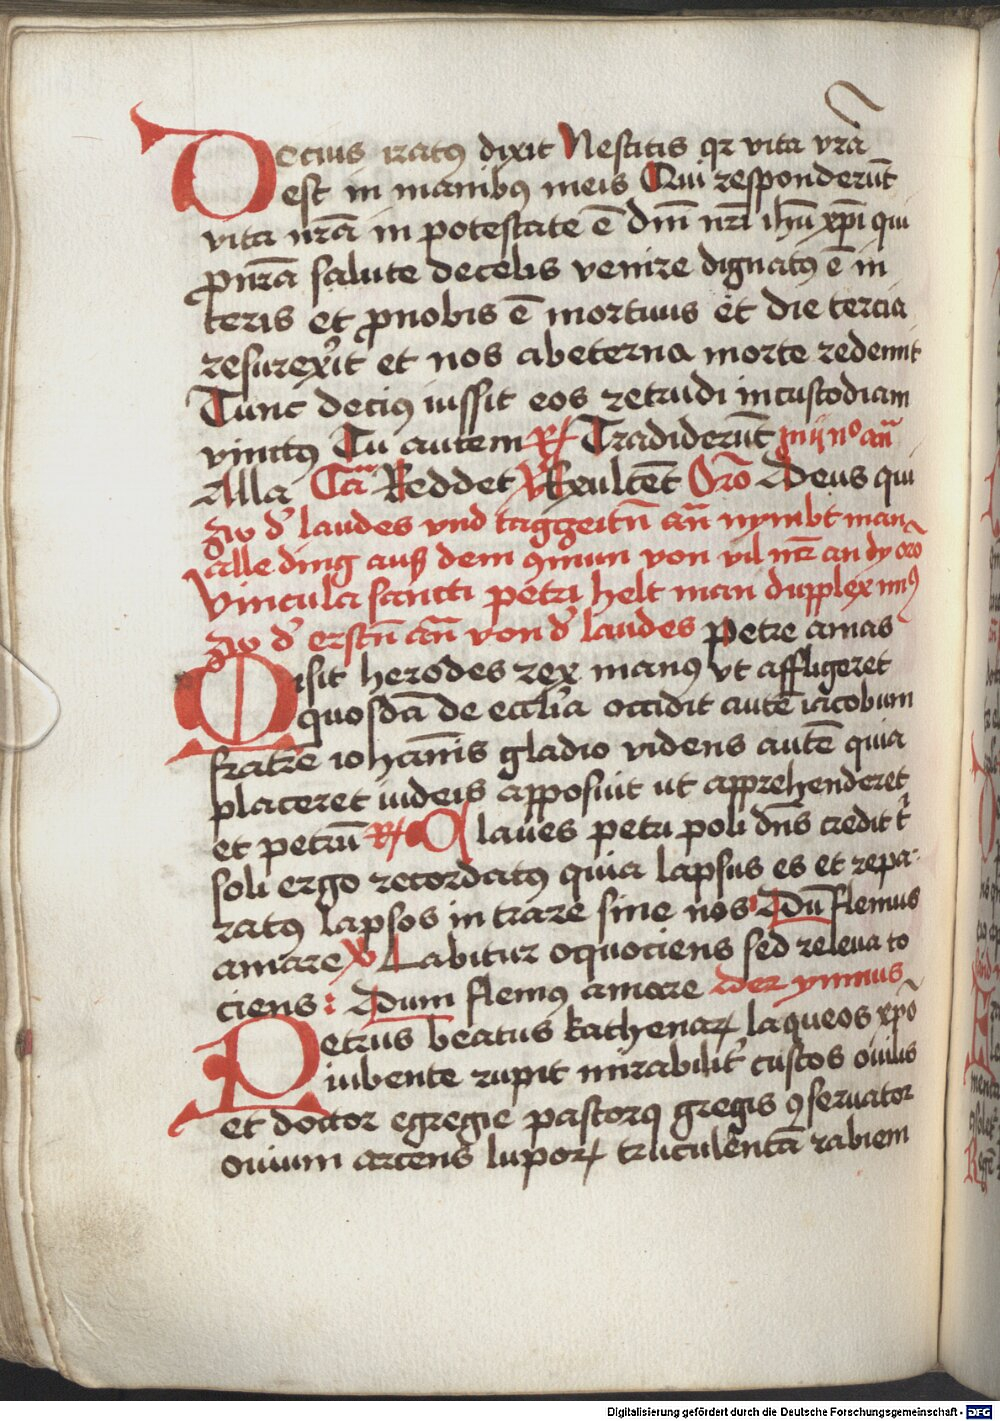 Decius iratꝯ dixit Nescitis qꝛ vita vr̄a
est in manibꝯ meis Qui responderūt
vita nr̄a in potestate ē dn̄i nr̄i ihū xp̄i qui
ꝓ nr̄a salute de celis venire dignatꝯ ē in
teris et ꝓ nobis ē mortuus et die tercia
resurexit et nos ab eterna morte redemit
Tunc deciꝯ iussit eos retrudi in custodiam
vinctꝯ Tu autem R/ Tradiderūt in iij no an̄
Alla Ca Reddet V Exultēt Oro Deus qui
Zw d' laudes vnd tagzeitn̄ an̄ nymbt man
alle ding auß dem ꝯmun von vil mr̄ an dy oro
Vincula sancti petri helt man dupplex minꝯ
Zw d' erstn̄ an̄ von d' laudes Petre amas
Misit herodes rex manꝯ vt affligeret
quosdā de eccl'ia occidit autē iacobum
fratrē iohānis gladio videns autē quia
placeret iudeis apposuit ut apprehenderet
et petrū R/ Claues petri poli dn̄s credit t'
soli ergo recordatꝯ quia lapsus es et repa
ratꝯ lapsos intrare sine nos Dū flemus
amare V Labitur oquociens sed releua to
ciens : Dum flemꝯ amare der ymnus
Petrus beatus kathenaꝝ laqueos xp̄o
iubente rupit mirabilit' custos ouilis
et doctor egregie pastorqꝫ gregis ꝯseruator
ouium arcens lupoꝝ truculentā rabiem
Digitalisierung gefördert durch die Deutsche Forschungsgemeinschaft - DFG